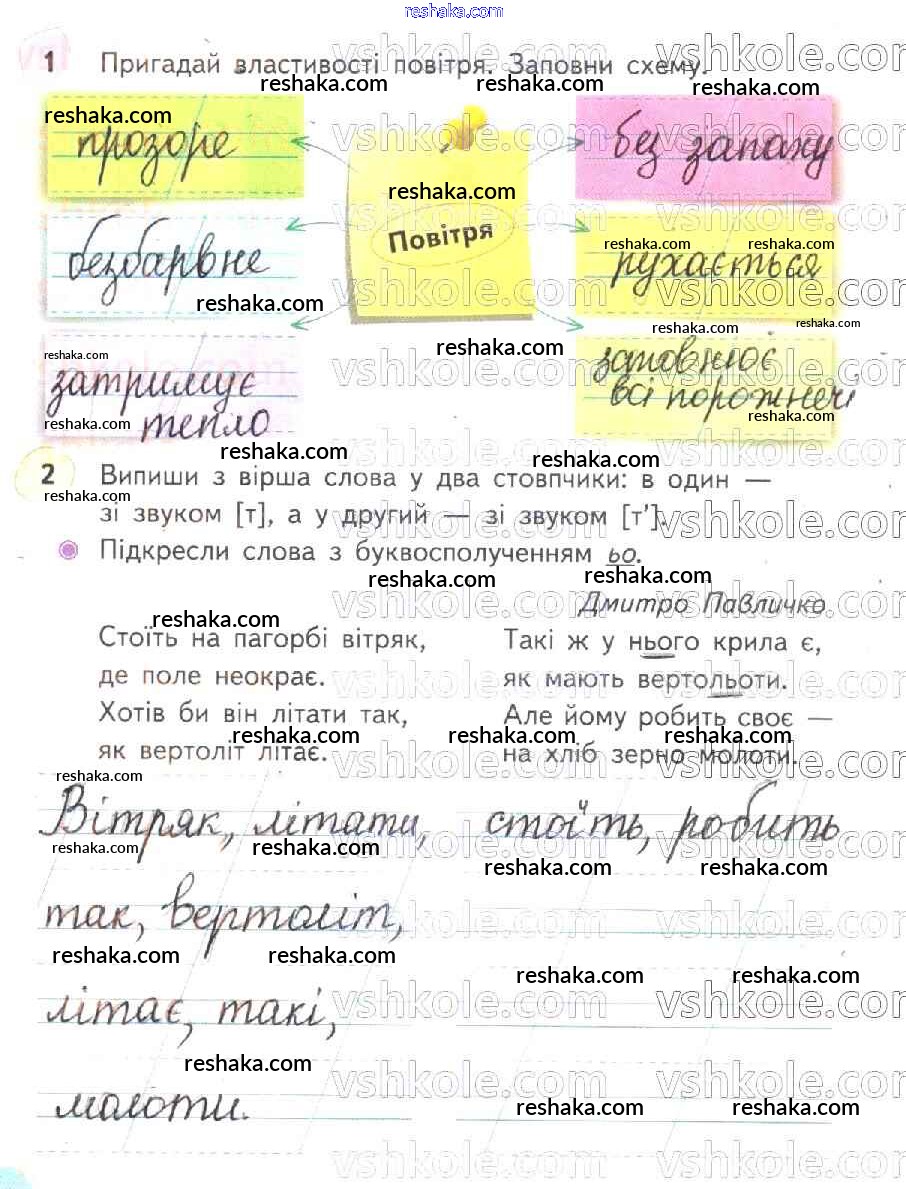 reshaka.com
1 Пригадай властивості повітря. Заповни схему.
vshkole.com
reshaka.com
прозоре
без запаху
Повітря
безбарвне
рухається
затримує
тепло
заповнює
всі порожнечі
2 Випиши з вірша слова у два стовпчики: в один —
зі звуком [т], а у другий — зі звуком [т'].
Підкресли слова з буквосполученням ьо.
Дмитро Павличко
Стоїть на пагорбі вітряк,
де поле неокрає.
Хотів би він літати так,
як вертоліт літає.
Такі ж у нього крила є,
як мають вертольоти.
Але йому робить своє —
на хліб зерно молоти.
Вітряк, літати,
так, вертоліт,
літає, такі,
молоти.
стоїть, робить